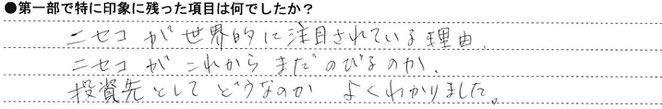 ●第一部で特に印象に残った項目は何でしたか？
ニセコが世界的に注目されている理由、
ニセコがこれからまだのびるのか、
投資先としてどうなのか よくわかりました。